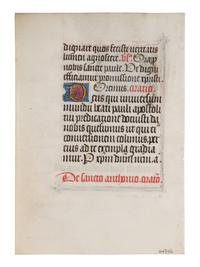 dignare quos fecisti ueritatis
lumen agnoscere. Ora pro
nobis sancte paule. Ut digni
efficiamur promissione xpristi
Oremus. oratio.
Deus qui uniuersum
mundu beati pauli apostoli
tui predicatione docuisti da
nobis quesumus ut qui ei
conuersionem colimus. per
eius ad te exempla gradia
mur. P xpm dnm nrm. a.
De sancto anthonio. orato.